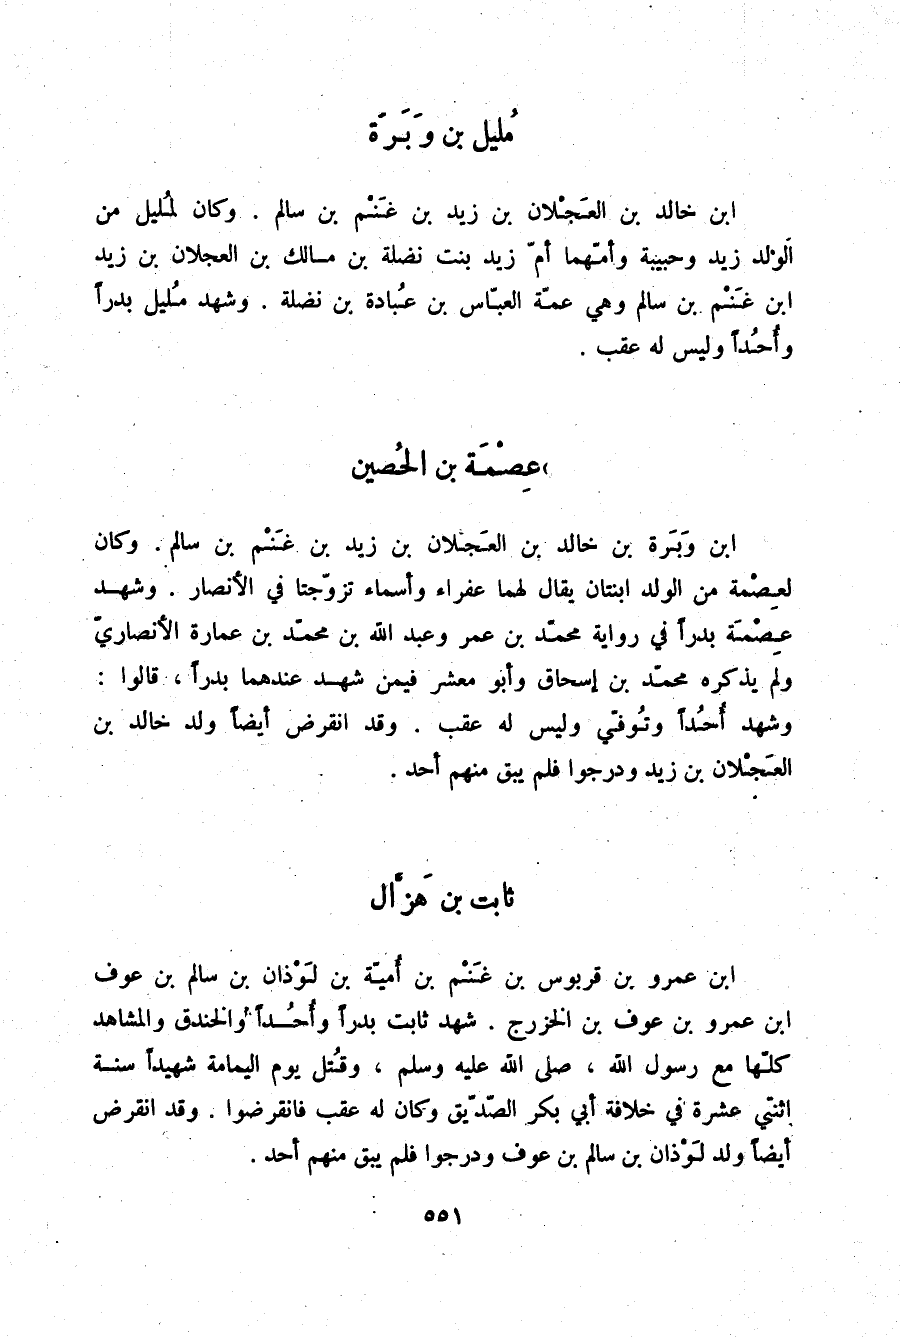 مُليل بن وَبَرَة
ابن خالد بن العَجْلان بن زيد بن غَنْم بن سالم . وكان لمُليل من
الوَلد زيد وحبيبة وأمّهما أمّ زيد بنت نضلة بن مالك بن العجلان بن زيد
ابن غَنْم بن سالم وهي عمّة العبّاس بن عُبادة بن نضلة . وشهد مُليل بدراً
وأُحُداً وليس له عقب .
عِصْمَة بن الحُصين
ابن وَبَرة بن خالد بن العَجلان بن زيد بن غَنْم بن سالم . وكان
لعِصْمة من الولد ابنتان يقال لهما عفراء وأسماء تزوّجتا في الأنصار . وشهد
عِصْمَة بدراً في رواية محمّد بن عمر وعبد الله بن محمّد بن عمارة الأنصاريّ
ولم يذكره محمّد بن إسحاق وأبو معشر فيمن شهد عندهما بدراً ، قالوا :
وشهد أُحُداً وتُوفّي وليس له عقب . وقد انقرض أيضاً ولد خالد بن
العَجْلان بن زيد ودرجوا فلم يبق منهم أحد .
ثابت بن هَزّال
ابن عمرو بن قربوس بن غَنْم بن أُميّة بن لَوْذان بن سالم بن عوف
ابن عمرو بن عوف بن الخزرج . شهد ثابت بدراً وأُحُداً والخندق والمشاهد
كلّها مع رسول الله ، صلى الله عليه وسلم ، وقُتل يوم اليمامة شهيداً سنة
اثنتي عشرة في خلافة أبي بكر الصّدّيق وكان له عقب فانقرضوا . وقد انقرض
أيضاً ولد لَوْذان بن سالم بن عوف ودرجوا فلم يبق منهم أحد .
٥٥١